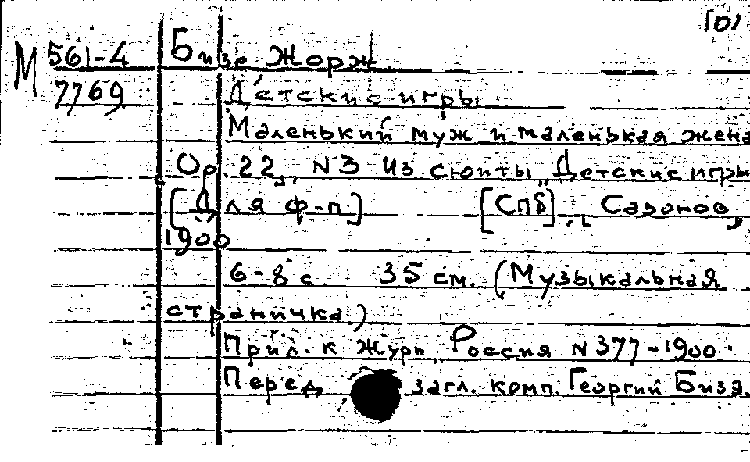 101
М 561-4 Бизе Жорж
7769 Детские игры
Маленький муж и маленькая жена
Op. 22, N3 Из сюиты „Детские игры
[Для ф-п] [Спб], Сазонов,
1900
6-8 с. 35 см. (Музыкальная
страничка.)
Прил. к журн. Россия N377-1900.
Перед загл. комп. Георгий Бизэ.